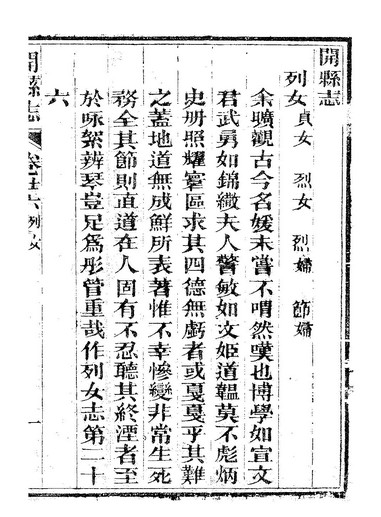 開縣志
列女 貞女 烈女 烈婦 節婦
余曠觀古今名媛未嘗不喟然嘆也博學如宣文
君武勇如錦繖夫人警敏如文姬道韞莫不彪炳
史册照耀寰區求其四德無虧者或戛戛乎其難
之蓋地道無成鮮所表著惟不幸慘變非常生死
務全其節則直道在人固有不忍聽其終湮者至
於咏絮辨琴豈足為彤管重哉作列女志第二十
六
開縣志 卷二十六 列女 一